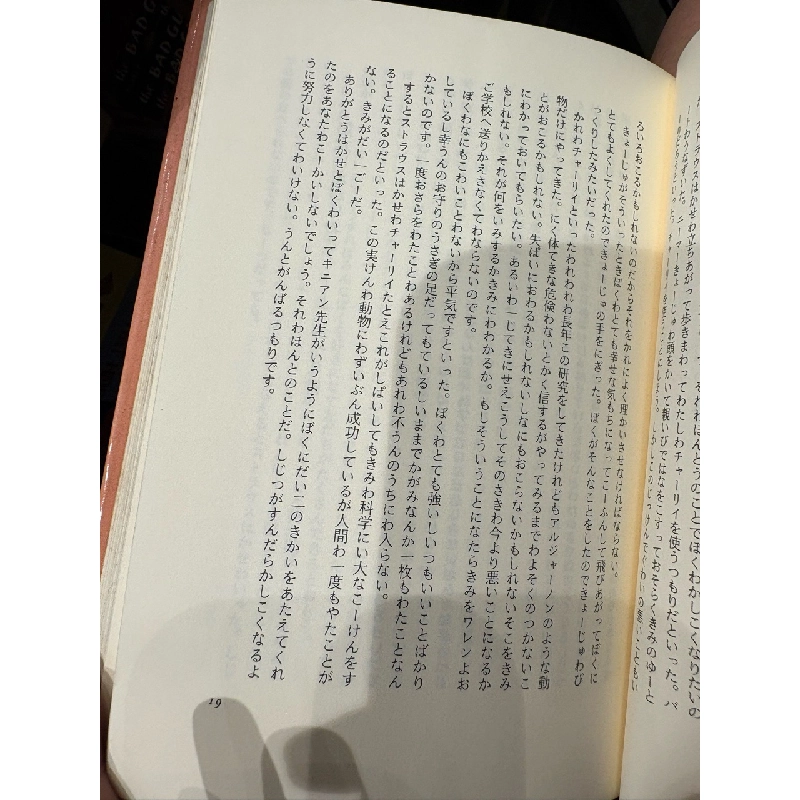 トラウスはかせわ立ちあがって歩きまわってわたしわチャーリイを使うつもりだといった。バ
ートわうなずいた。ニーマーきょーじゅわ頭をかいて親いびではなをこすっておそらくきみのゆーと
ろいろおこるかもしれないのだからそれをかれによく理かいさせなければならない。
きょーじゅがそういったときぼくわとても幸せな気もちになってこーふんして飛びあがってぼくに
とてもよくしてくれたのできょーじゅの手をにぎった。ぼくがそんなことをしたのできょーじゅわび
っくりしたみたいだった。
かれわチャーリイといったわれわれわ長年この研究をしてきたけれどもアルジャーノンのような動
物だけにやってきた。にく体てきな危険わないとかく信するがやってみるまでわよそくのつかないこ
とがおこるかもしれない。失ぱいにおわるかもしれないしなにもおこらないかもしれないそこをきみ
にわかっておいてもらいたい。あるいわ一じてきにせえこうしてそのさきわ今より悪いことになるか
もしれない。それが何をいみするかきみにわわかるか。もしそういうことになたらきみをワレンよお
ご学校へ送りかえさなくてわならないのです。
ぼくわなにもこわいことわないから平気ですといった。ぼくわとても強いしいつもいいことばかり
しているし幸うんのお守りのうさぎの足だってもているしいままでかがみなんか一枚もわたことなん
かないのです。一度おさらをわたことわあるけれどもあれわ不うんのうちにわ入らない。
するとストラウスはかせわチャーリイたとえこれがしぱいしてもきみわ科学にい大なこーけんをす
ることになるのだといった。この実けんわ動物にわずいぶん成功しているが人間わ一度もやたことが
ない。きみがだい一ごーだ。
ありがとうはかせとぼくわいってキニアン先生がいうようにぼくにだい二のきかいをあたえてくれ
たのをあなたわこーかいしないでしょう。それわほんとのことだ。しじつがすんだらかしこくなるよ
うに努力しなくてわいけない。うんとがんばるつもりです。
19